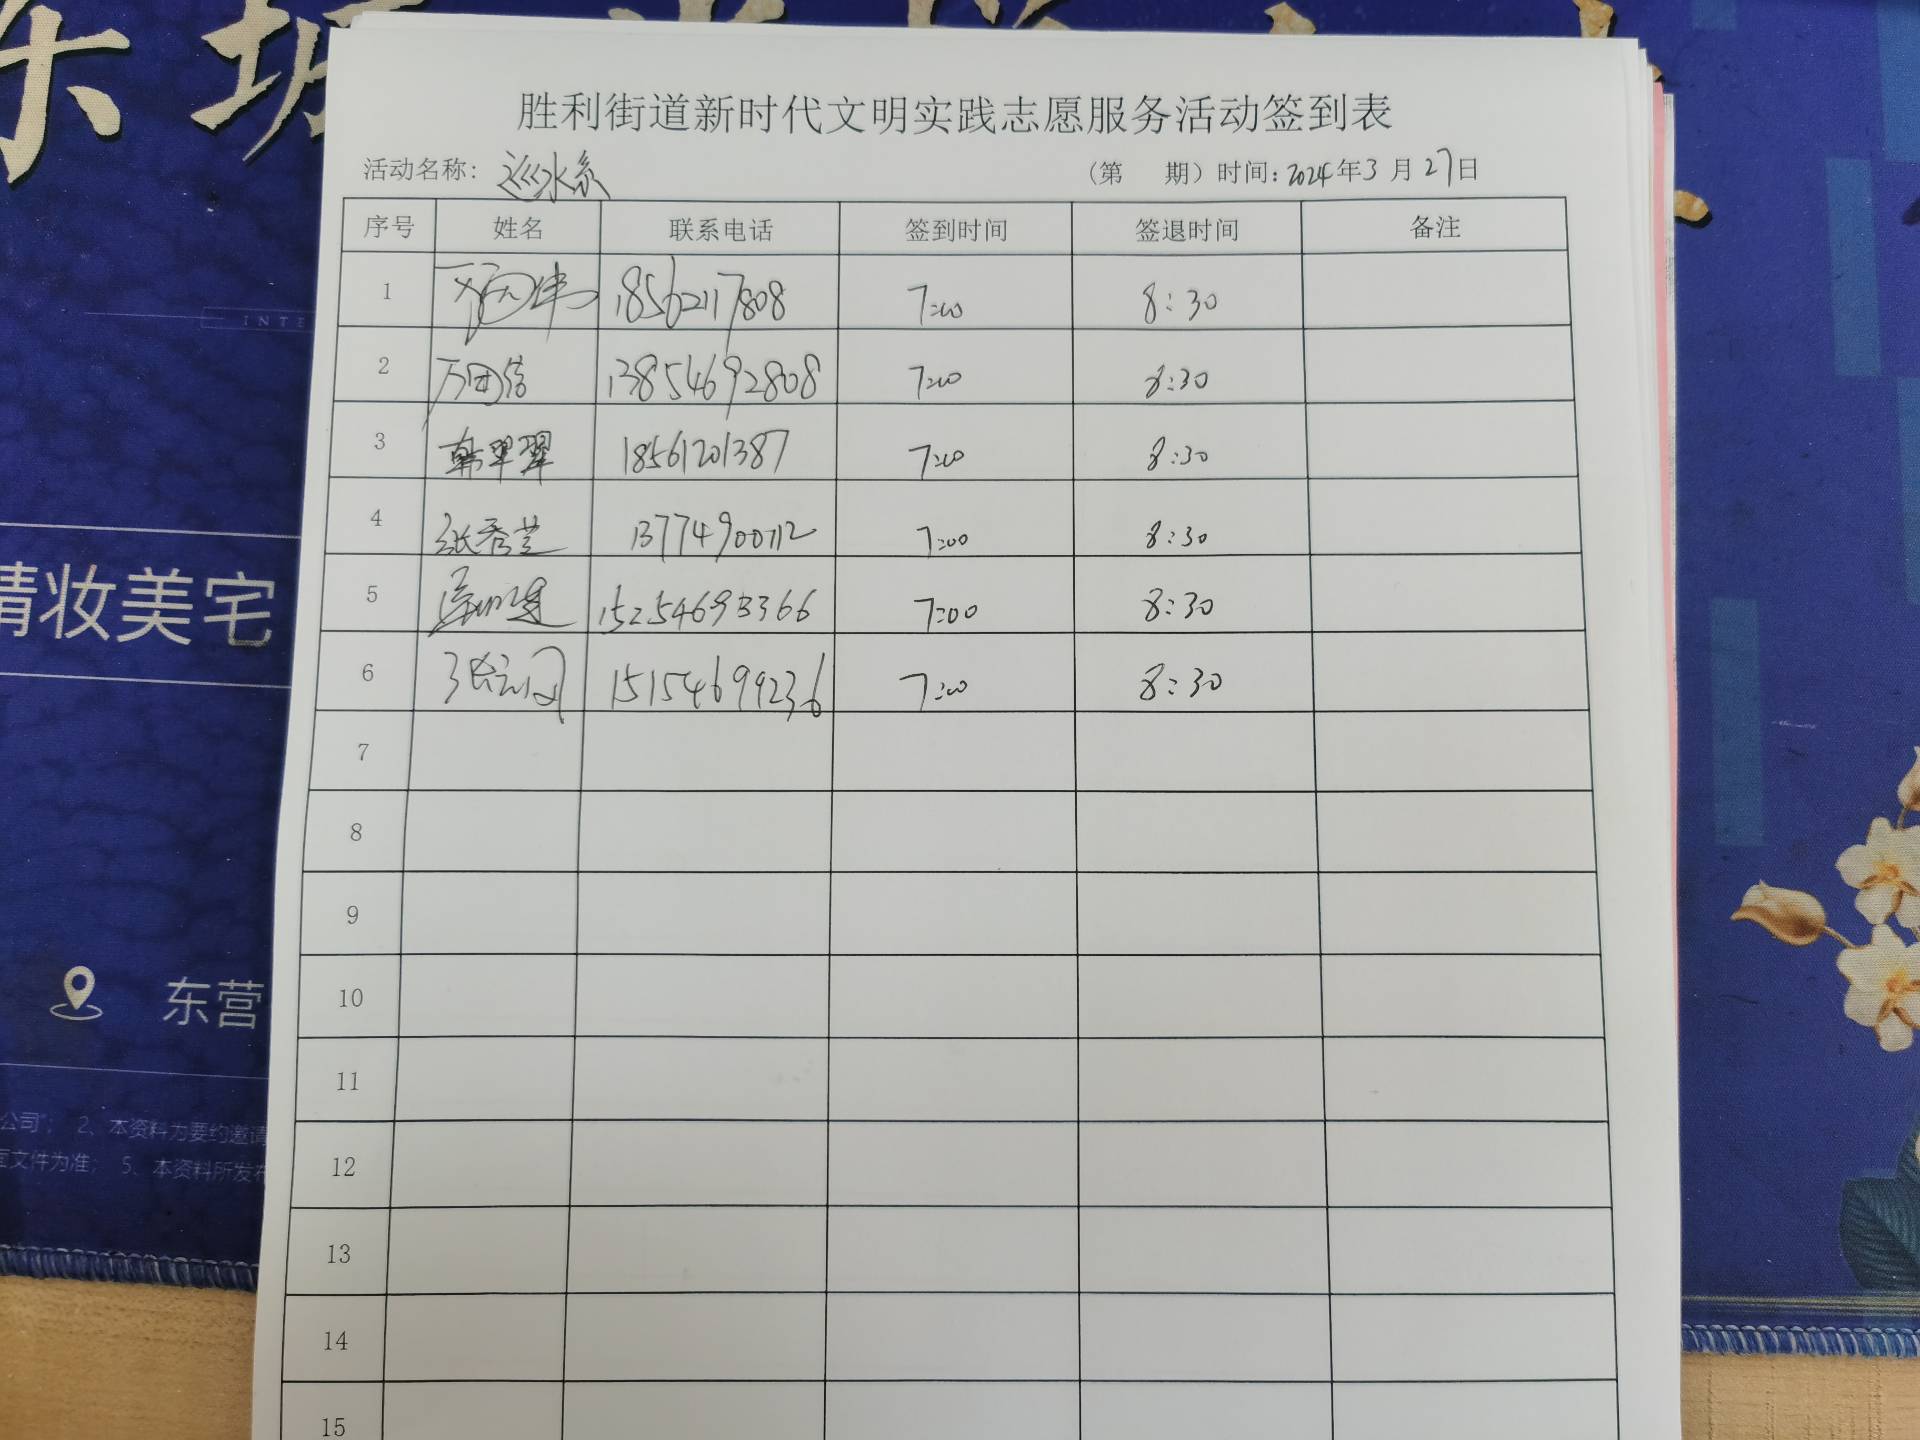 胜利街道新时代文明实践志愿服务活动签到表
活动名称：巡水系 （第 期）时间：2024年3月27日
序号 姓名 联系电话 签到时间 签退时间 备注
1 18562117808 7:00 8:30
2 万团信 13854692808 7:00 8:30
3 韩翠翠 18561201387 7:00 8:30
4 张秀兰 13774900712 7:00 8:30
5 15254693366 7:00 8:30
6 15154699236 7:00 8:30
7
8
9
10
11
12
13
14
15
INTE
精妆美宅
东营
公司"； 2、本资料为要约邀请
面文件为准； 5、本资料所发布